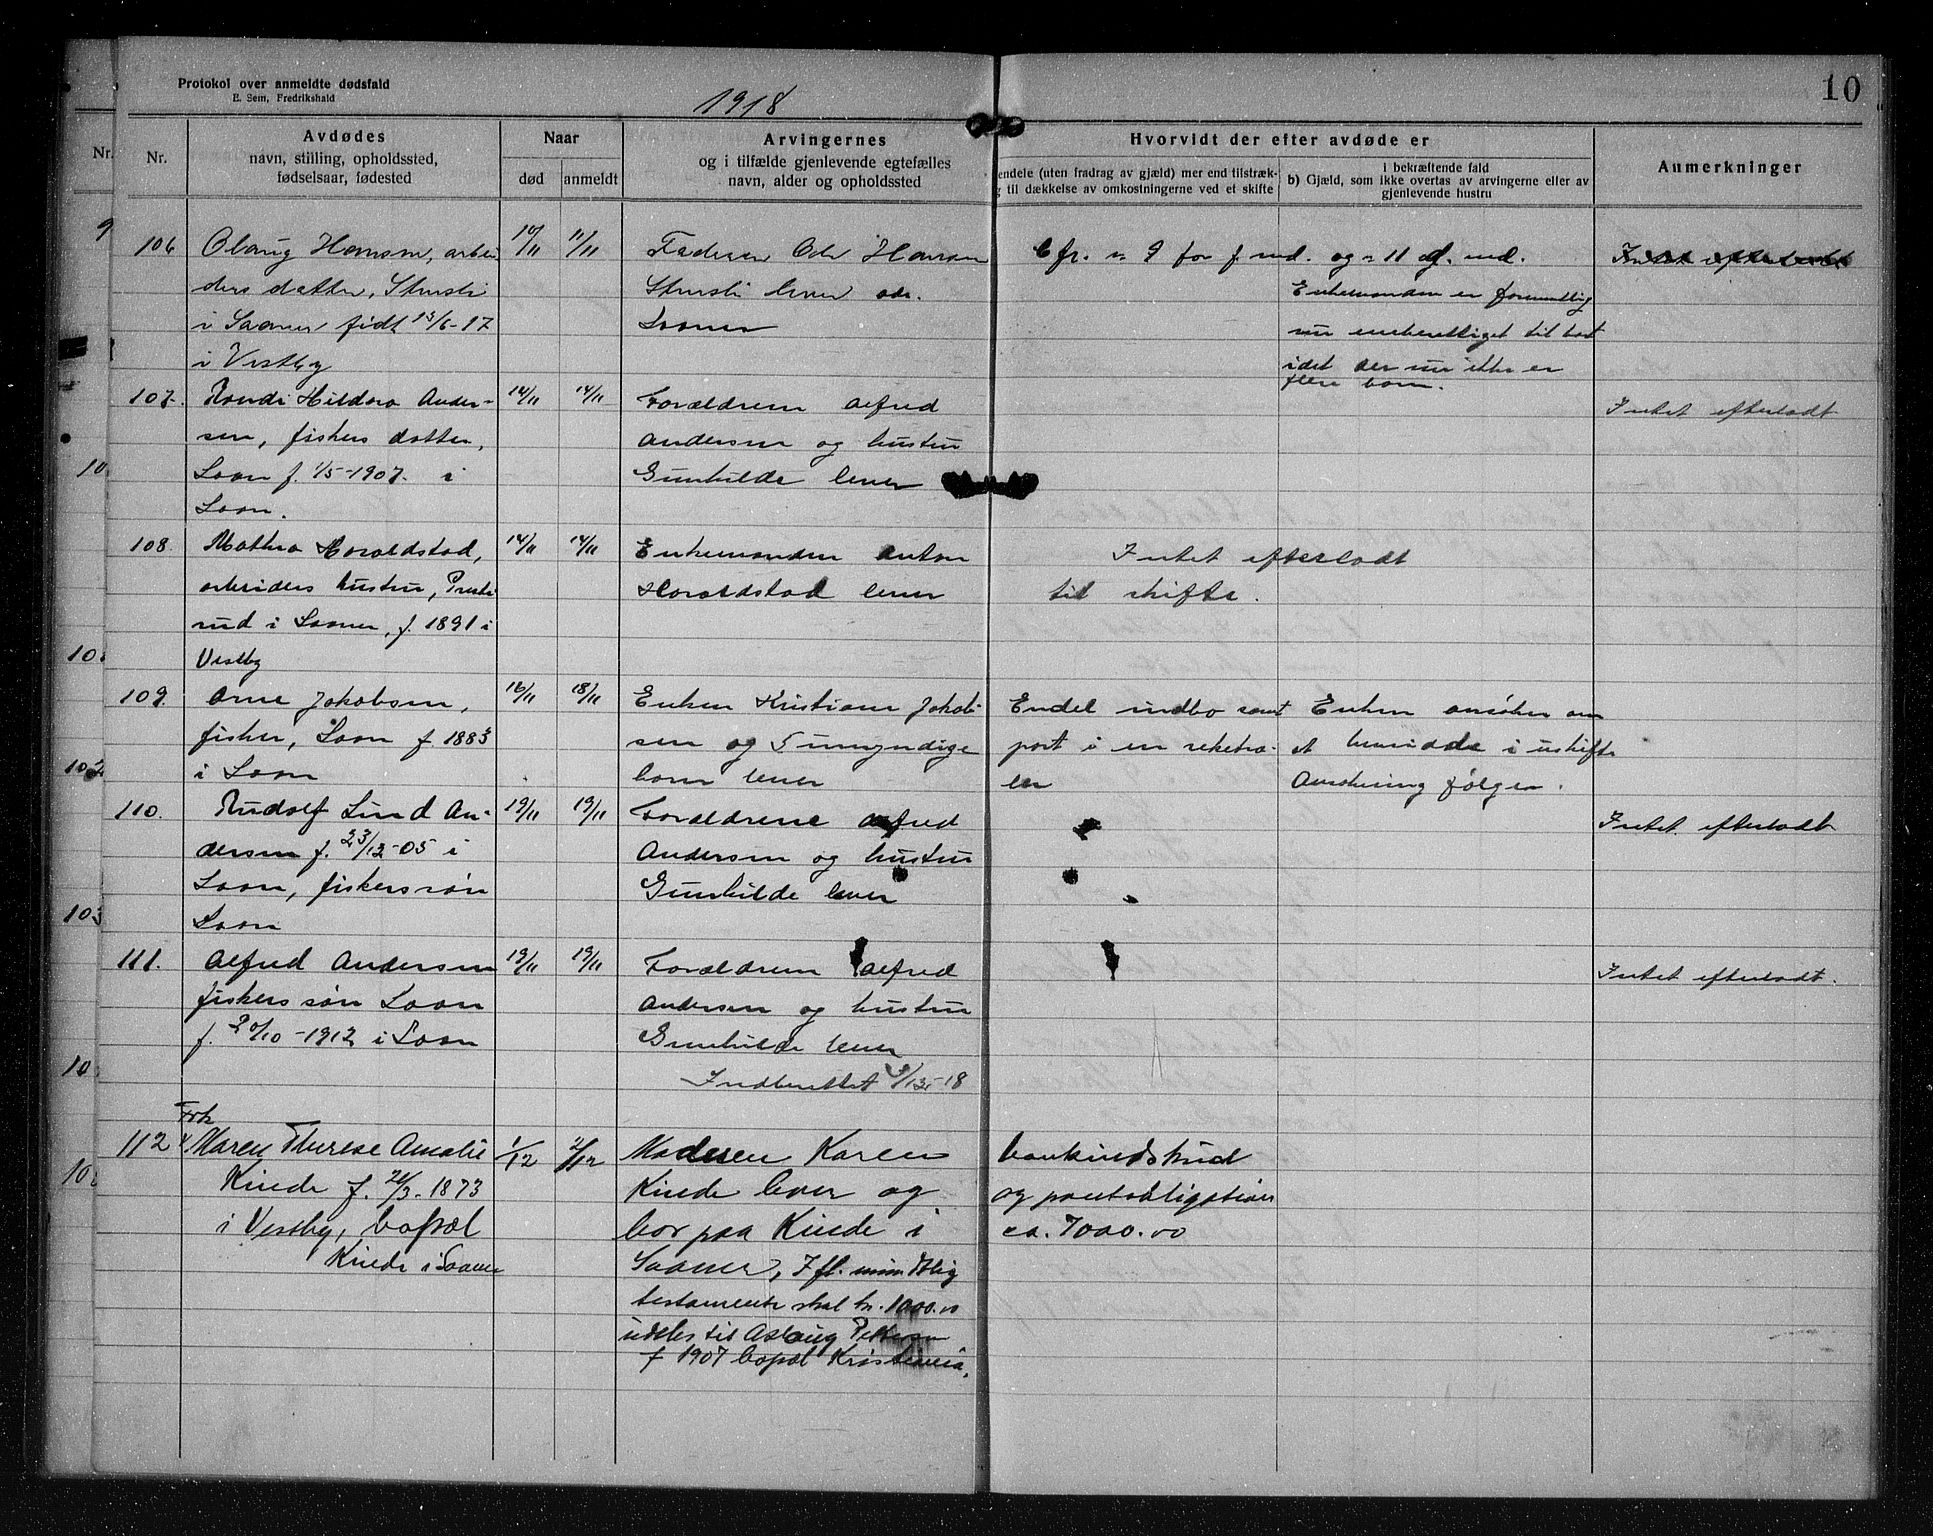 Protokol over anmeldte dødsfald
E. Sem, Fredrikshald
1918
10
Nr.
Nr.
Avdødes
navn, stilling, opholdssted,
fødselsaar, fødested
Naar
død
anmeldt
Arvingernes
og i tilfælde gjenlevende egtefælles
navn, alder og opholdssted
Hvorvidt der efter avdøde er
endele (uten fradrag av gjæld) mer end tilstræk-
g til dækkelse av omkostningerne ved et skifte
i bekræftende fald
b) Gjæld, som ikke overtas av arvingerne eller av
gjenlevende hustru
Anmerkninger
106
Olaug Hansen, arbei
ders datter,
i Saaner, født 15/6-17
i Vestby
10/11
11/11
Faderen Ole Hansen
lever
Saaner
Cfr. n 9 for f. md. og n 11 d. md.
Enkemanden er formentlig
nu eneberettiget til boet
idet der nu ikke er
flere barn.
Intet efterladt
107.
Randi Hildora Ander-
sen, fiskers datter,
Soon f. 1/5-1907. i
Soon.
14/11
14/11
Forældrene Alfred
Andersen og hustru
Gunhilde lever
Intet efterladt
108.
Mathea Haraldstad,
arbeiders hustru, Prest
rud i Saaner, f. 1891 i
Vestby
14/11
14/11
Enkemanden Anton
Haraldstad lever
Intet efterladt
til skifte.
109.
Arne Jakobsen,
fisker, Soon f 1883
i Soon
16/11
18/11
Enken Kristiane Jakob-
sen og 5 umyndige
barn lever
Endel indbo samt
part i en reketra-
ler
Enken ansøker om
at hensidde i uskifte
Ansøkning følger.
110.
Rudolf Lund An-
dersen f. 23/12-05 i
Soon, fiskers søn
Soon
19/11
19/11
Forældrene Alfred
Andersen og hustru
Gunhilde lever
Intet efterladt
111.
Alfred Andersen
fiskers søn Soon
f. 20/10-1912 i Soon
19/11
19/11
Forældrene Alfred
Andersen og hustru
Gunhilde lever
Intet efterladt.
Indberettet /12-18
112
Frk
Maren Therese Amalie
Kinde f. 26/3-1873
i Vestby, bopæl
Kinde i Saaner
1/12
2/12
Moderen Karen
Kinde lever og
bor paa Kinde i
Saaner, Ifl. mundtlig
testamente skal kr. 1000.00
utdeles til Aslaug Pettersen
f 1907 bopæl Kristiania.
bankindskud
og pantobligation
ca. 7000.00